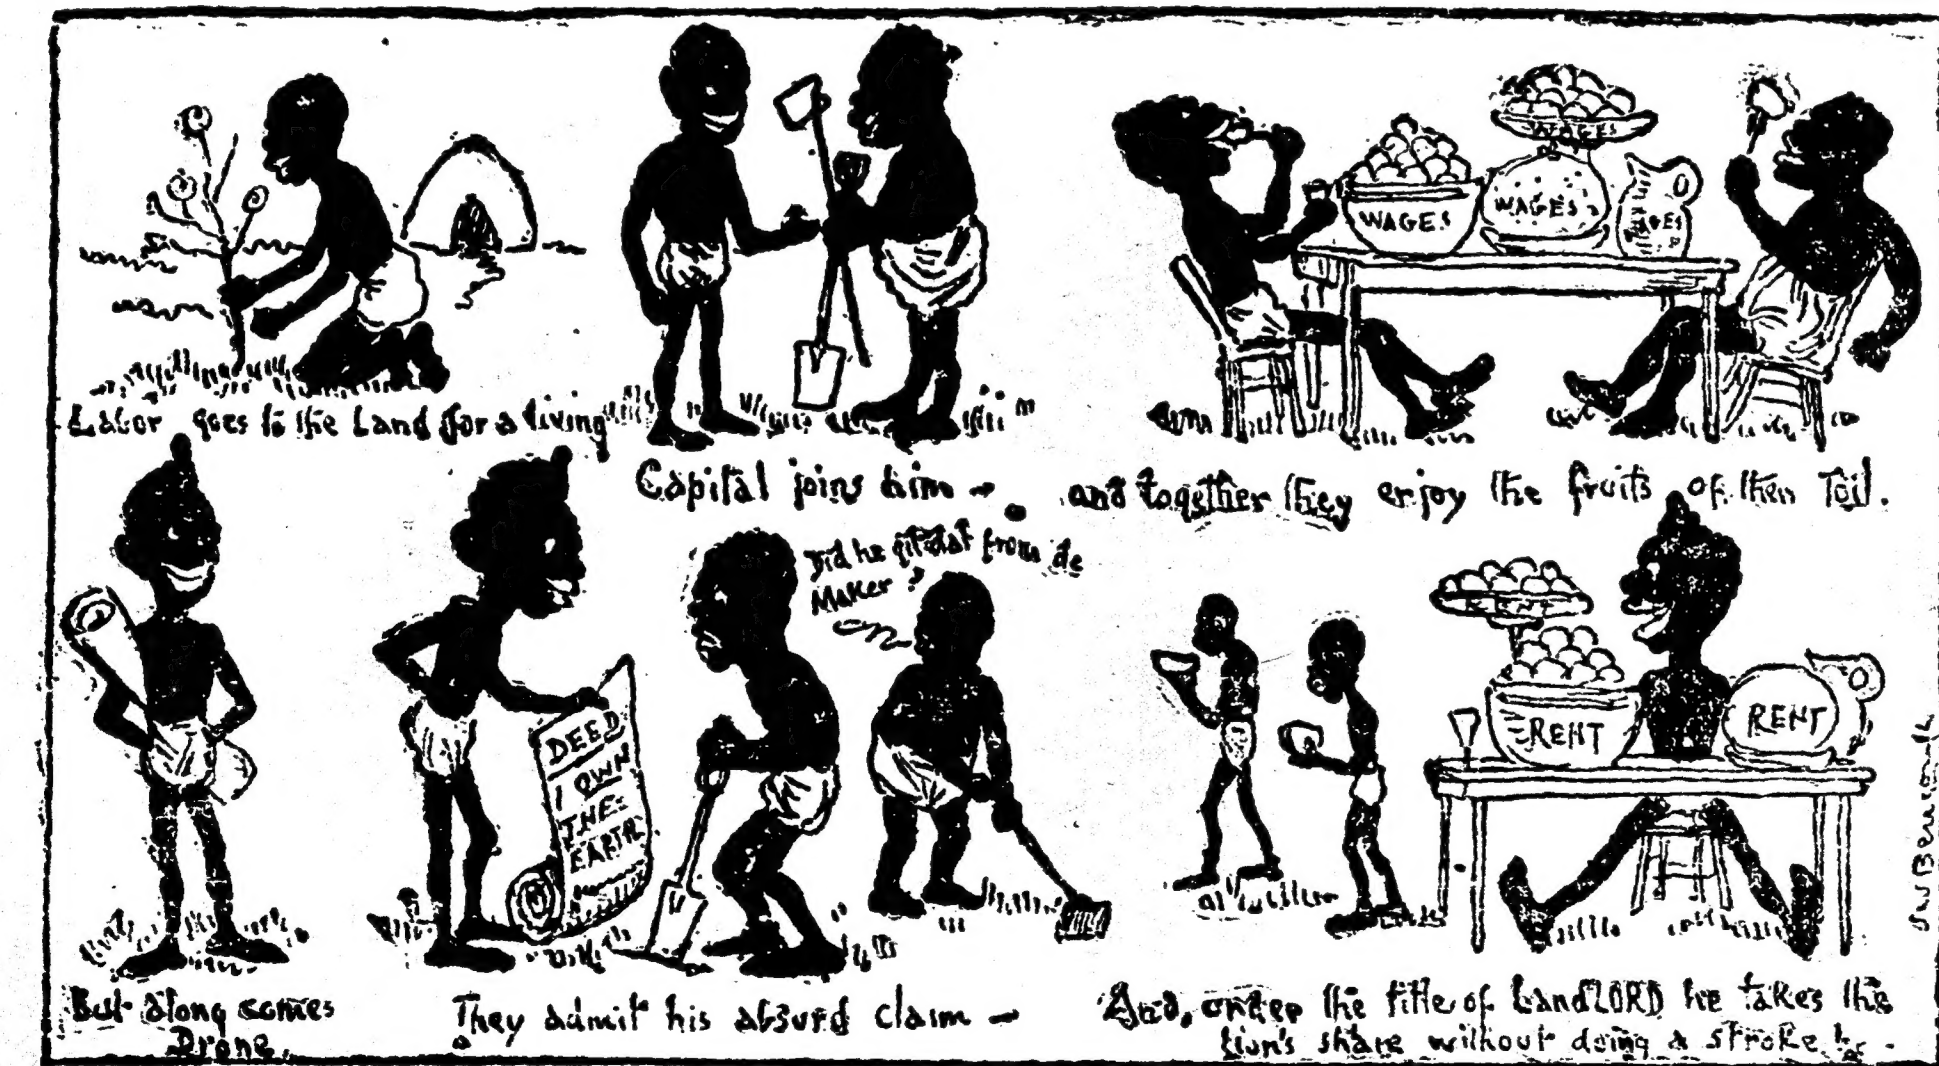 Labor goes to the Land for a living
Capital joins him —
WAGES
WAGES
WAGES
WAGES
and together they enjoy the fruits of their Toil.
But along comes
Drone.
Did he git dat from de
Maker?
DEED
I OWN
THE
EARTH
They admit his absurd claim —
RENT
RENT
RENT
And, under the title of LandLORD he takes the
lion's share without doing a stroke